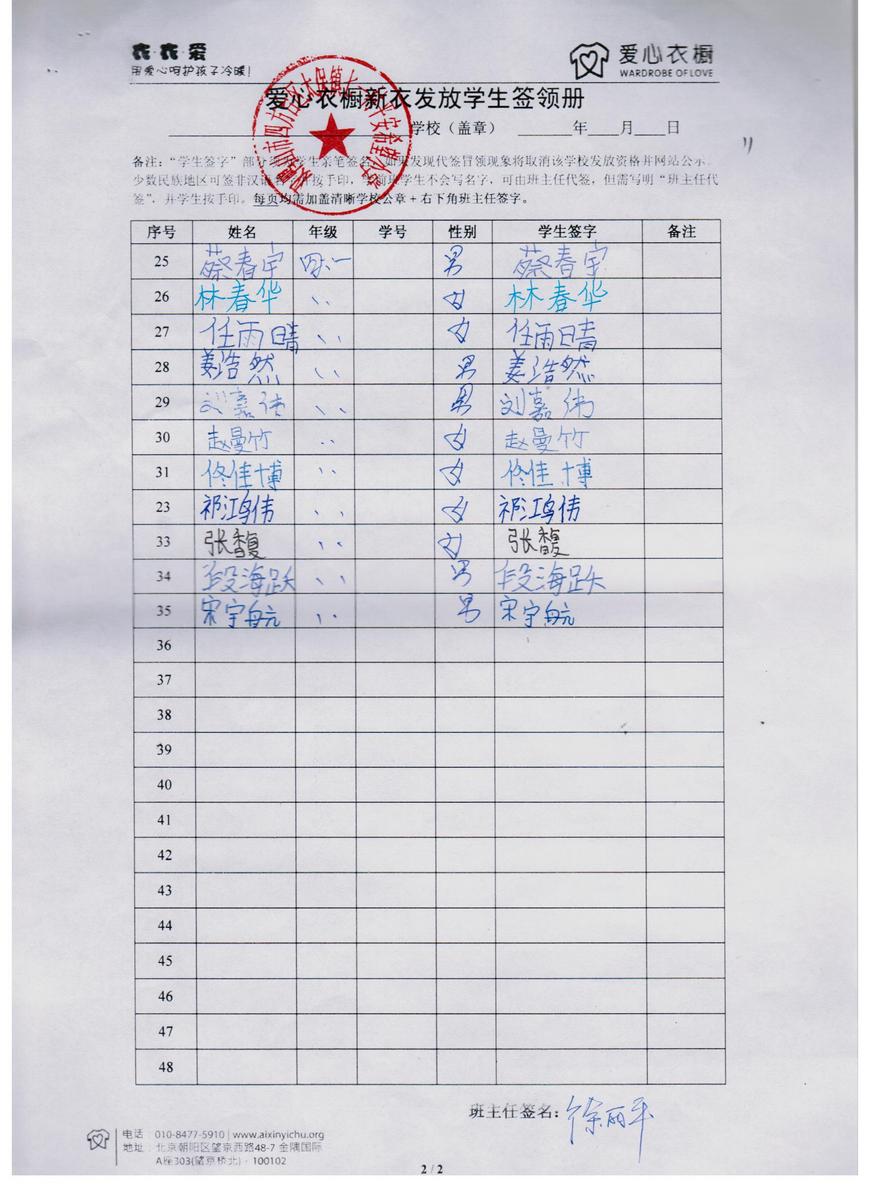 衣·衣·爱
用爱心呵护孩子冷暖！
爱心衣橱
WARDROBE OF LOVE
爱心衣橱新衣发放学生签领册
学校（盖章） 年 月 日
备注：“学生签字”部 学生亲笔签名，如果发现代签冒领现象将取消该学校发放资格并网站公示。
少数民族地区可签非汉语 并按手印， 学生不会写名字，可由班主任代签，但需写明“班主任代
签”，并学生按手印。每页均需加盖清晰学校公章+右下角班主任签字。
序号 姓名 年级 学号 性别 学生签字 备注
25 蔡春宇 四.一 男 蔡春宇
26 林春华 、、 女 林春华
27 任雨晴 、、 女 任雨晴
28 姜浩然 、、 男 姜浩然
29 刘嘉伟 、、 男 刘嘉伟
30 赵曼竹 、、 女 赵曼竹
31 佟佳博 、、 女 佟佳博
23 祁鸿伟 、、 女 祁鸿伟
33 张馥 、、 女 张馥
34 段海跃 、、 男 段海跃
35 宋宇航 、、 男 宋宇航
36
37
38
39
40
41
42
43
44
45
46
47
48
班主任签名：徐丽平
电话：010-8477-5910 | www.aixinyichu.org
地址：北京朝阳区望京西路48-7 金隅国际
A座303(望京桥北)·100102
2 / 2